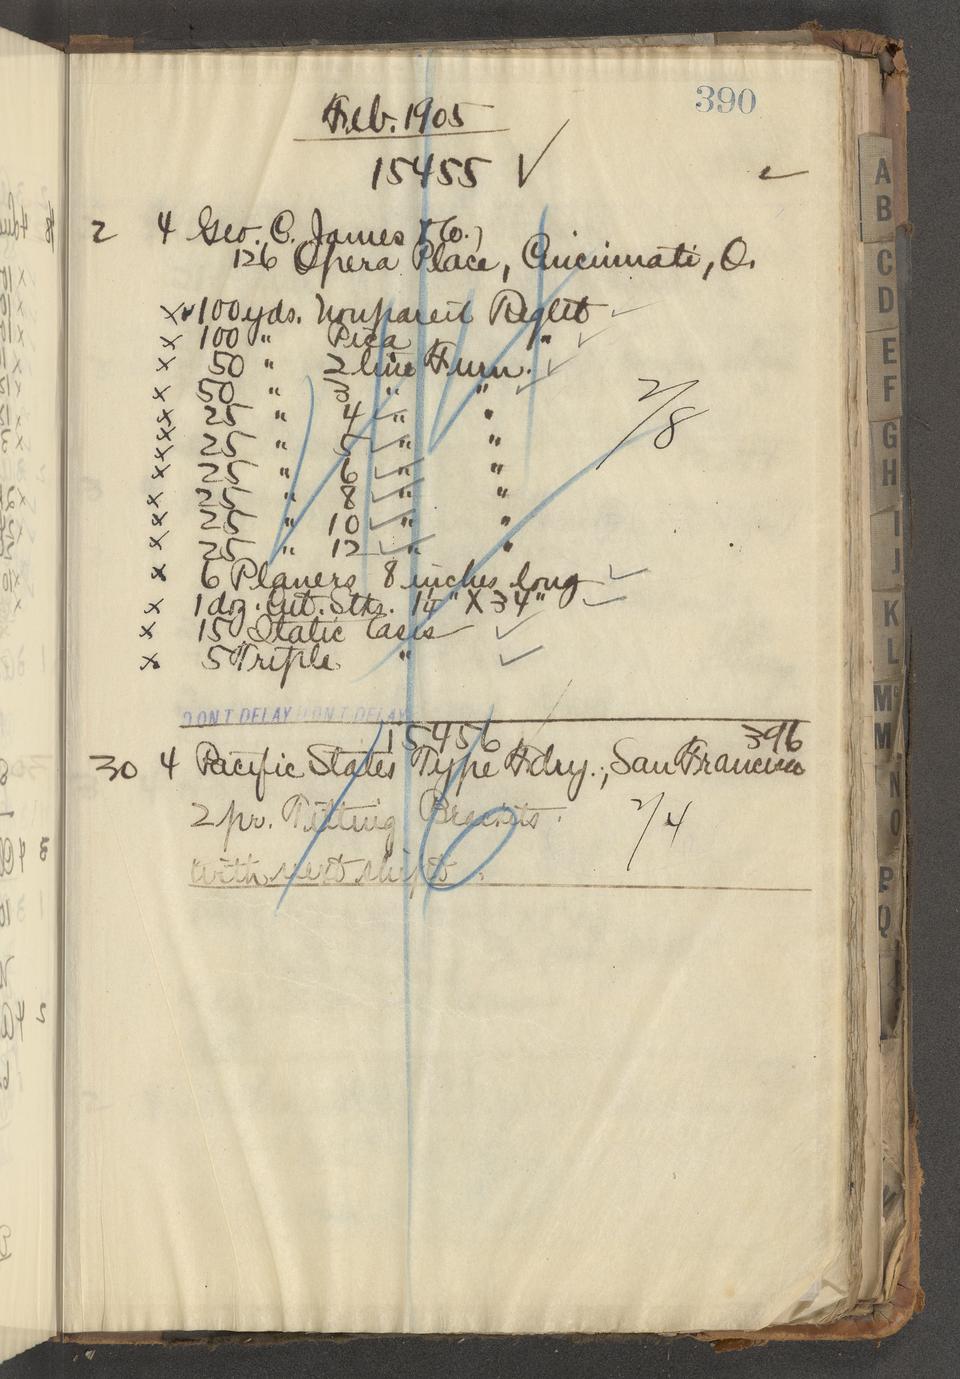 390
Feb. 1905
15455 ✓
2 4 Geo. C. James & Co.,
126 Opera Place, Cincinnati, O.
x 100 yds. Nonpareil Reglet ✓
x 100 " Pica " ✓
x 50 " 2 line Furn. ✓
x 50 " 3 " " ✓
x 25 " 4 " "
x 25 " 5 " "
x 25 " 6 " "
x 25 " 8 " "
x 25 " 10 " "
x 25 " 12 " "
2/8
x 6 Planers 8 inches long ✓
x 1 doz. Gut. Stks. 14" X 34" ✓
x 15 Italic Cases ✓
x 5 Triple " ✓
DON'T DELAY DON'T DELAY
15456 396
30 4 Pacific States Type Fdry., San Francisco
2 pr. Tilting Brackets. 2/4
with next shipt.
A
B
C
D
E
F
G
H
I
J
K
L
Mc
M
N
O
P
Q